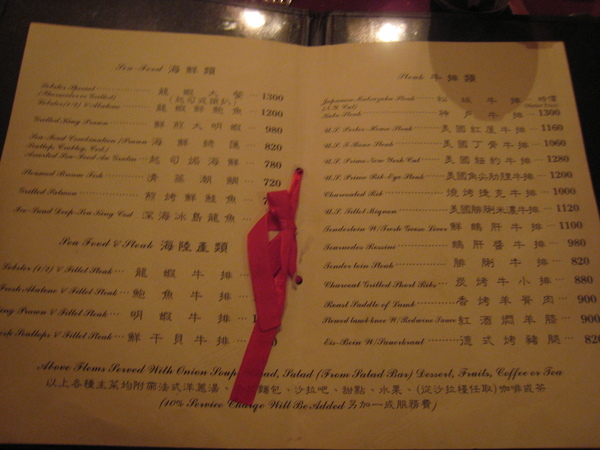 Sea-Food 海鮮類
Lobster Special 龍蝦大餐 1300
(Thermidor or Grilled) (起司或燒烤)
Lobster(1/2) & Abalone 龍蝦鮮鮑魚 1200
Grilled King Prawn 鮮煎大明蝦 980
Sea-Food Combination (Prawn 海鮮總匯 820
Scallop, Cod)
Assorted Sea-Food Au Gratin 起司焗海鮮 780
Steamed Fish 清蒸潮鯛 720
Grilled Salmon 煎烤鮮鮭魚
Ice-Land Deep-Sea King Cod 深海冰島龍魚
Sea Food & Steak 海陸產類
Lobster (1/2) & Fillet Steak 龍蝦牛排
Fresh Abalone & Fillet Steak 鮑魚牛排
King Prawn & Fillet Steak 明蝦牛排
Scallops & Fillet Steak 鮮干貝牛排
Steak 牛排類
Japanese Matsuzaka Steak 松坂牛排 時價
Kobe Steak 神戶牛排 1300
U.S Porter House Steak 美國紅屋牛排 1160
U.S T-Bone Steak 美國丁骨牛排 1060
U.S Prime New York Cut 美國紐約牛排 1280
U.S Prime Rib-Eye Steak 美國肋眼牛排 1200
Charcoaled Rib 燒烤捷克牛排 1000
U.S Fillet Mignon 美國腓俐米濃牛排 1120
Tenderloin W/Fresh Goose Liver 鮮鵝肝牛排 1100
Tournedos Rossini 鵝肝醬牛排 980
Tenderloin Steak 腓俐牛排 820
Charcoal Grilled Short Ribs 炭烤牛小排 880
Roast Saddle of Lamb 香烤羊脊肉 900
Stewed lamb knee W/Redwine Sauce 紅酒燜羊膝 900
Eis-Bein W/Sauerkraut 德式烤豬腿 820
Above Items Served With Onion Soup, Bread, Salad (From Salad Bar) Dessert, Fruits, Coffee or Tea
以上各種主菜均附法式洋蔥湯、麵包、沙拉吧、甜點、水果、(從沙拉檯任取)咖啡或茶
(10% Service Charge Will Be Added 另加一成服務費)